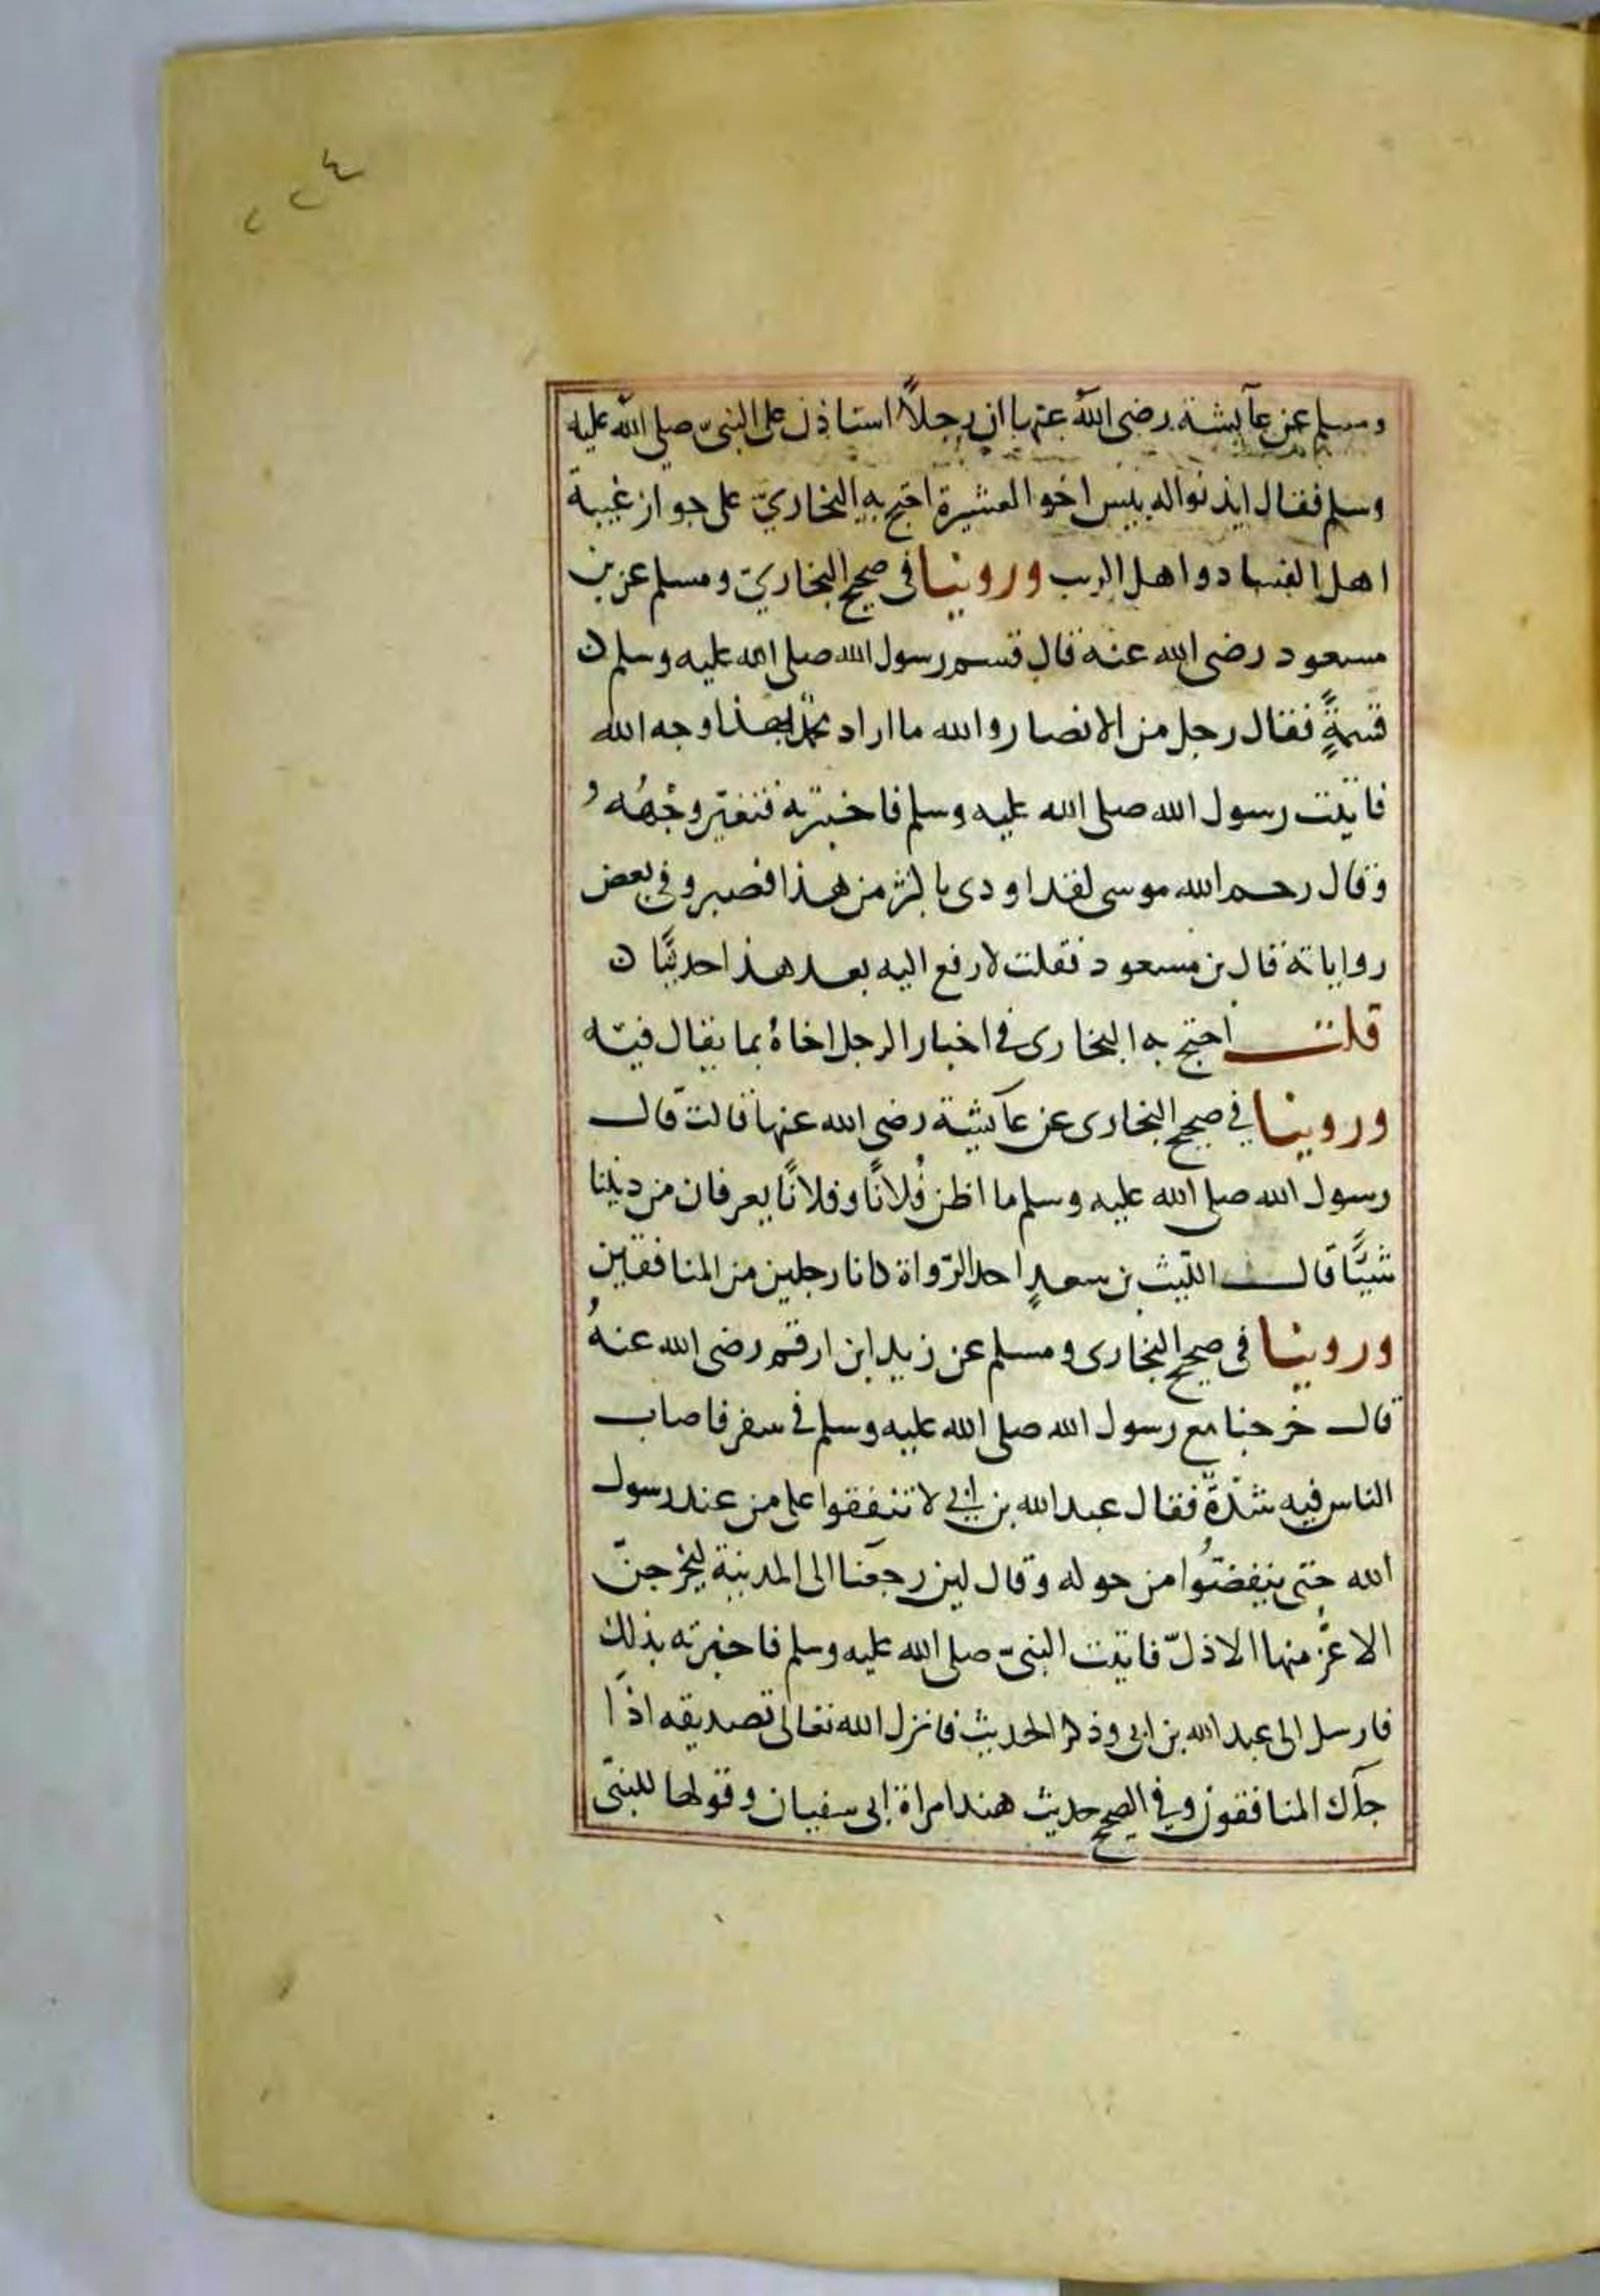 ٢٢٤
ومسلم عن عآيشة رضى الله عنها ان رجلاً استاذن على النبىّ صلى الله عليه
وسلم فقال ايذنواله بيس اخوا لعشيرة احتج به البخاريّ على جواز غيبة
اهل الفساد واهل الريب وروينا فى صحيح البخاريّ ومسلم عن بن
مسعود رضى الله عنه قال قسم رسول الله صلى الله عليه وسلم ن
قسمةً فقال رجل من الانصار والله ما اراد محمد بهذا وجه الله
فاتيت رسول الله صلى الله عليه وسلم فاخبرته فتغيّر وجهُه و
وقال رحم الله موسى لقد اودى باكثر من هذا فصبر وفى بعض
رواياته قال بن مسعود فقلت لارفع اليه بعد هذا حديثًا ن
قلت احتج به البخارى فى اخبار الرجل اخاهُ بما يقال فيه
وروينا في صحيح البخارى عن عآيشة رضى الله عنها قالت قال
رسول الله صلى الله عليه وسلم ما اظن فُلانًا وفلانًا يعرفان من ديننا
شيًّا قال الليث بن سعدٍ احد الرّواة كانا رجلين من المنافقين
وروينا فى صحيح البخارى ومسلم عن زيد ابن ارقم رضى الله عنهُ
قال خرجنا مع رسول الله صلى الله عليه وسلم فى سفر فاصاب
الناس فيه شدّة فقال عبد الله بن ابي لا تنفقوا على من عند رسول
الله حتى ينفضّوا من حوله وقال لين رجعنا الى المدينة ليخرجنّ
الاعزُّ منها الاذلّ فاتيت النبىّ صلى الله عليه وسلم فاخبرته بذلك
فارسل الى عبد الله بن ابى وذكر الحديث فانزل الله تعالى تصديقه اذَا
جآك المنافقون وفي الصحيح حديث هند امراة ابى سفيان وقولها للنبىّ